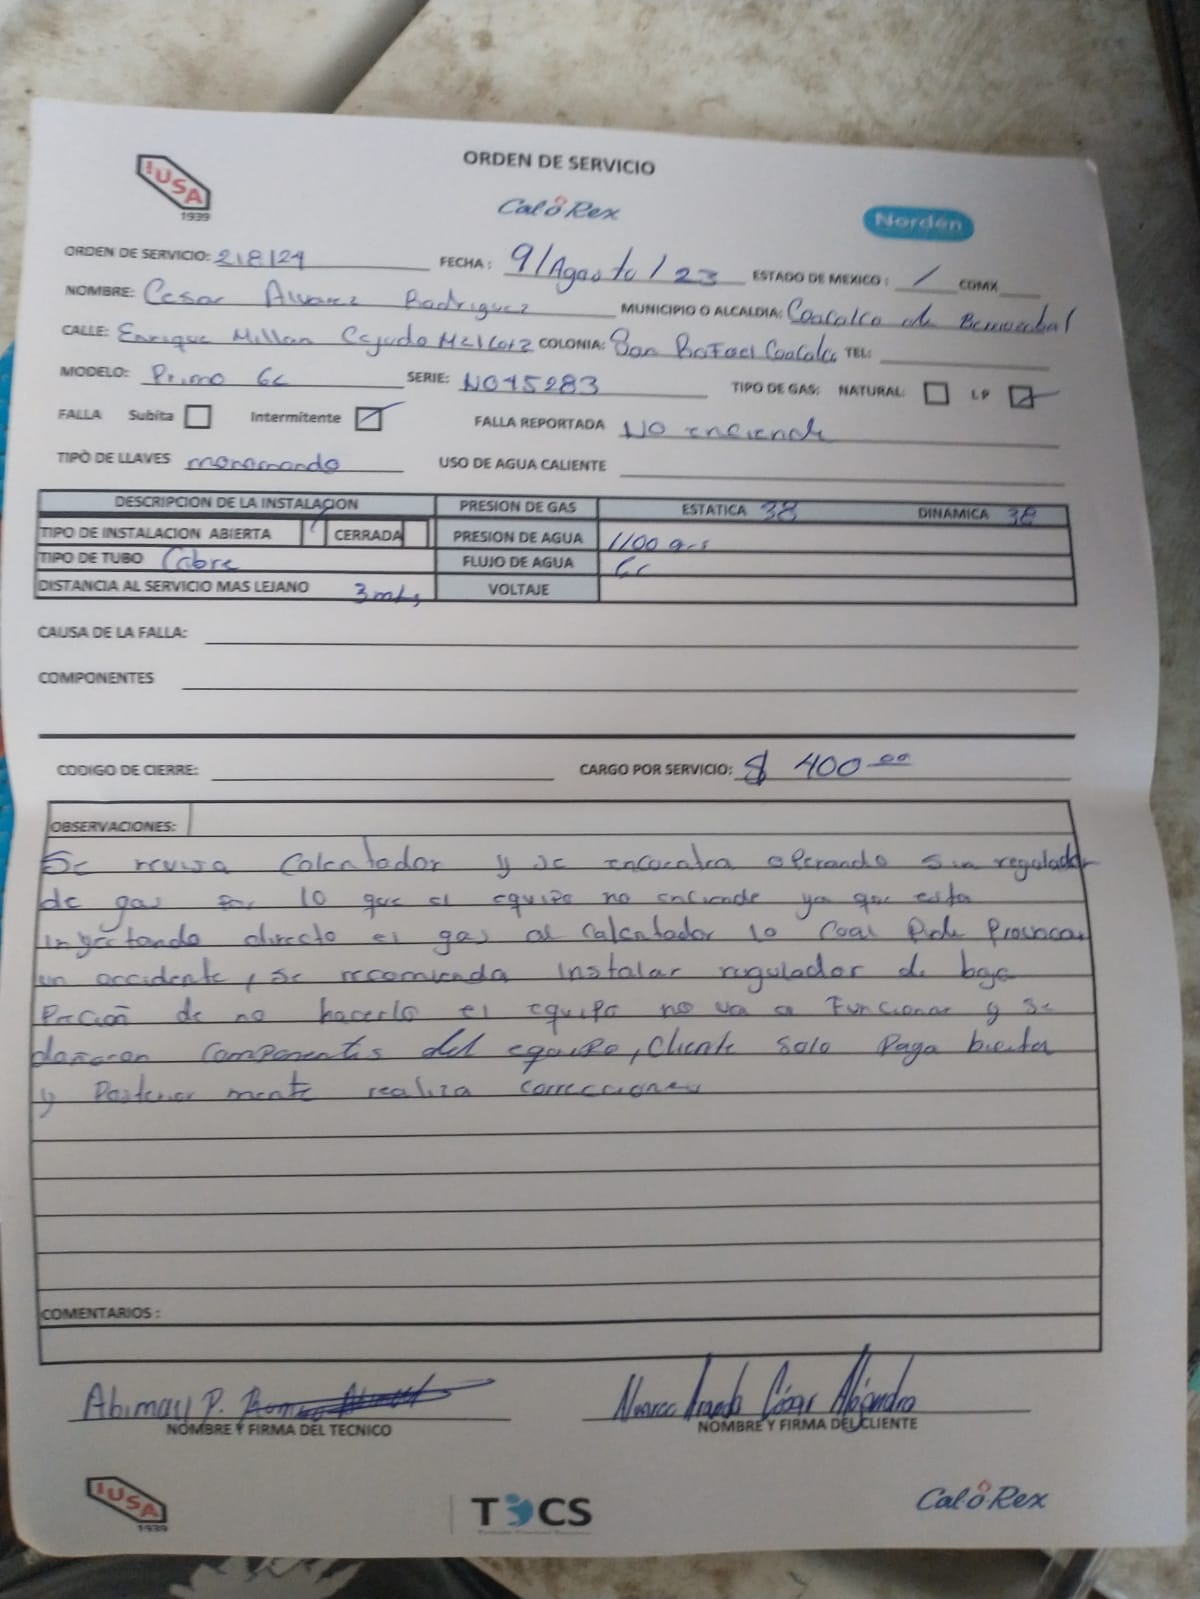 ORDEN DE SERVICIO
IUSA
1939
CaloRex
Nordén
ORDEN DE SERVICIO: 218124 FECHA: 9/Agosto/23 ESTADO DE MEXICO: / CDMX
NOMBRE: Cesar Alvarez Rodriguez MUNICIPIO O ALCALDIA: Coacalco de
CALLE: Enrique Millan Cejudo COLONIA: San Rafael Coacalco TEL:
MODELO: Primo 6c SERIE: TIPO DE GAS: NATURAL: LP
FALLA Subita Intermitente FALLA REPORTADA No enciende
TIPÒ DE LLAVES monomando USO DE AGUA CALIENTE
DESCRIPCION DE LA INSTALACION PRESION DE GAS ESTATICA 38 DINAMICA 38
TIPO DE INSTALACION ABIERTA CERRADA PRESION DE AGUA 1100 grs
TIPO DE TUBO Cobre FLUJO DE AGUA 6c
DISTANCIA AL SERVICIO MAS LEJANO 3 mts VOLTAJE
CAUSA DE LA FALLA:
COMPONENTES
CODIGO DE CIERRE: CARGO POR SERVICIO: $ 400.00
OBSERVACIONES:
Se revisa Calentador y se encuentra operando sin regulador
de gas por lo que el equipo no enciende ya que esta
inyectando directo el gas al Calentador lo Cual Pude Provocar
un accidente, se recomienda instalar regulador de baja
Preción de no hacerlo el equipo no va a Funcionar y se
dañaran Componentes del equipo, Cliente solo Paga
y Posterior mente realiza correcciones
COMENTARIOS:
Abimay P.
NOMBRE Y FIRMA DEL TECNICO
César Alejandro
NOMBRE Y FIRMA DEL CLIENTE
IUSA
1939
TOCS
CaloRex